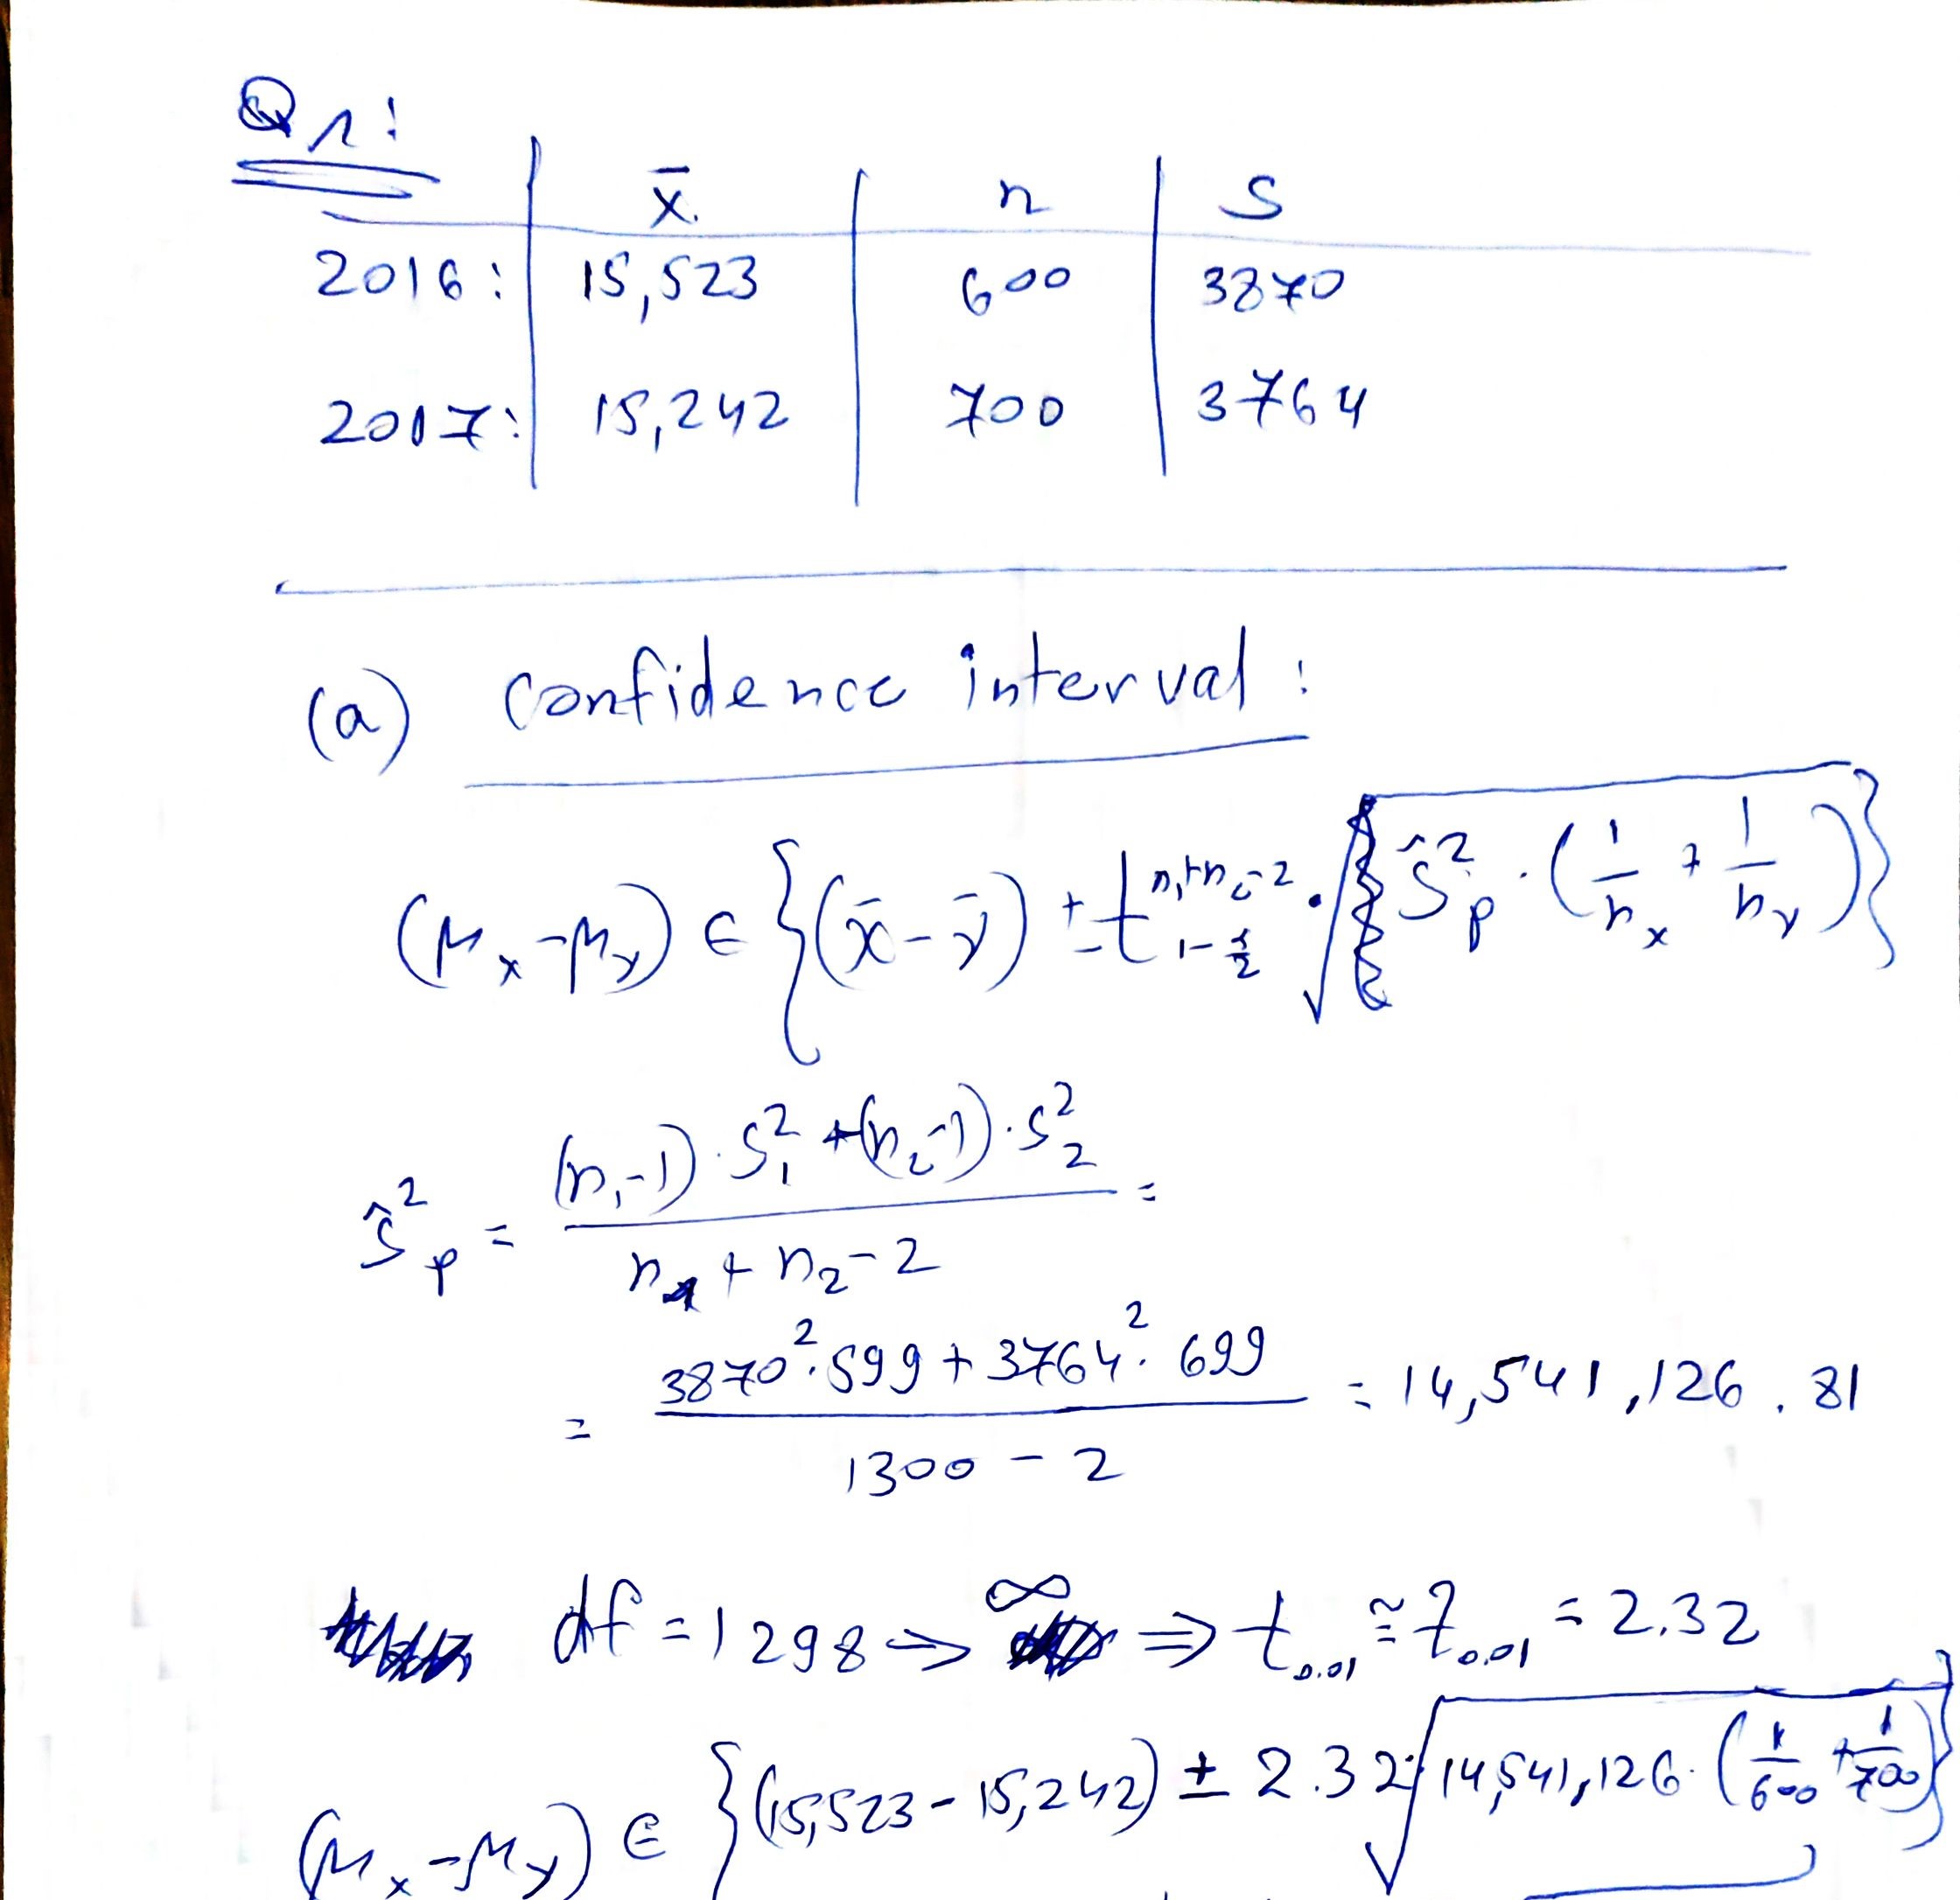 Q1:
x̄ n S
2016: 15,523 600 3870
2017: 15,242 700 3764
(a) Confidence interval:
(μx-μy) ∈ {(x̄-ȳ) ± t^(n1+n2-2)_(1-α/2) · √(Ŝ²p · (1/nx + 1/ny))}
Ŝ²p = ((n1-1)·S²1 + (n2-1)·S²2) / (n1 + n2 - 2) =
= (3870²·599 + 3764²·699) / (1300 - 2) = 14,541,126.81
df = 1298 → ∞ ⇒ t0.01 ≅ Z0.01 = 2.32
(μx-μy) ∈ {(15,523 - 15,242) ± 2.32·√(14,541,126·(1/600 + 1/700))}